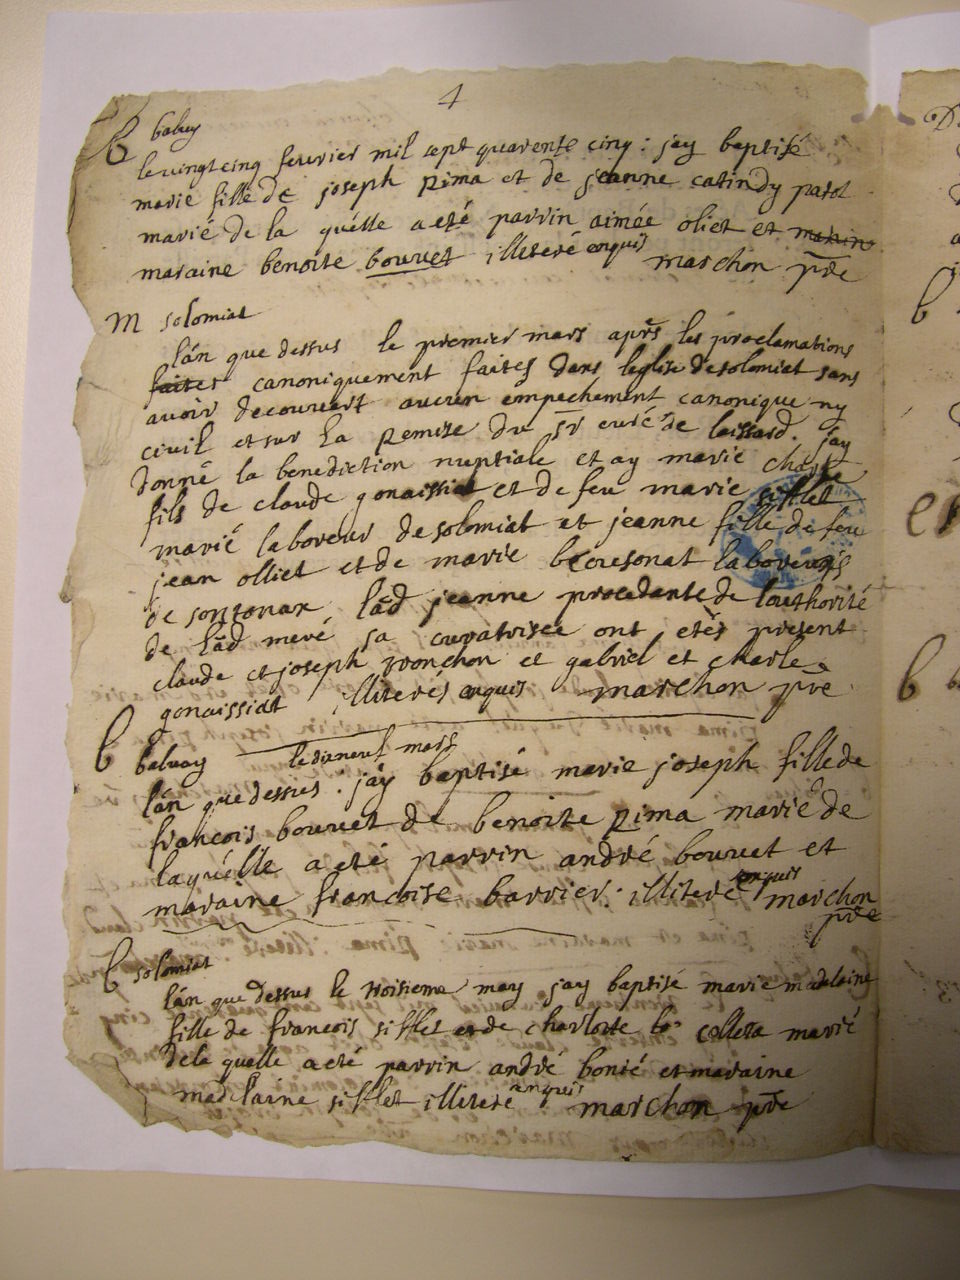 4
B balvay
le vingt cinq feuvrier mil sept quarente cinq : jay baptisé
marie fille de joseph pima et de jeanne catin dy patol
marié de la quélle a eté parrin aimée oliet et marain
maraine benoite bouvet illiteré enquis marchon ptre
M solomiat
lán que dessus le premier mars aprés les proclamations
faites canoniquement faites dans leglise de solomiat sans
avoir decouvert aucun empechement canonique ny
civil et sur la remise du sr curé de leissard . jay
donné la benediction nuptiale et ay marié charle
fils de claude gonaissiat et de feu marie sifflet
marié laboreur de solomiat et jeanne fille de feu
jean olliet et de marie laboreurs
de sontonax lad jeanne procedante de lauthorité
de lad meré sa curatrisce ont etés present
claude et joseph ronchon et gabriel et charle
gonaissiat illiterés enquis marchon ptre
B balvay le dixneuf mars
lán que dessus : jáy baptisé marie joseph fille de
francois bouvet de benoite pima marié de
laquélle a eté parrin andré bouvet et
maraine francoise barrier . illiteré enquis marchon
ptre
B solomiat
lán que dessus le troisieme may jay baptisé marie madelaine
fille de francois sifflet et de charlotte colleta marié
dela quelle a eté parrin andré bonté et maraine
madelaine sifflet illiteré enquis marchon ptre